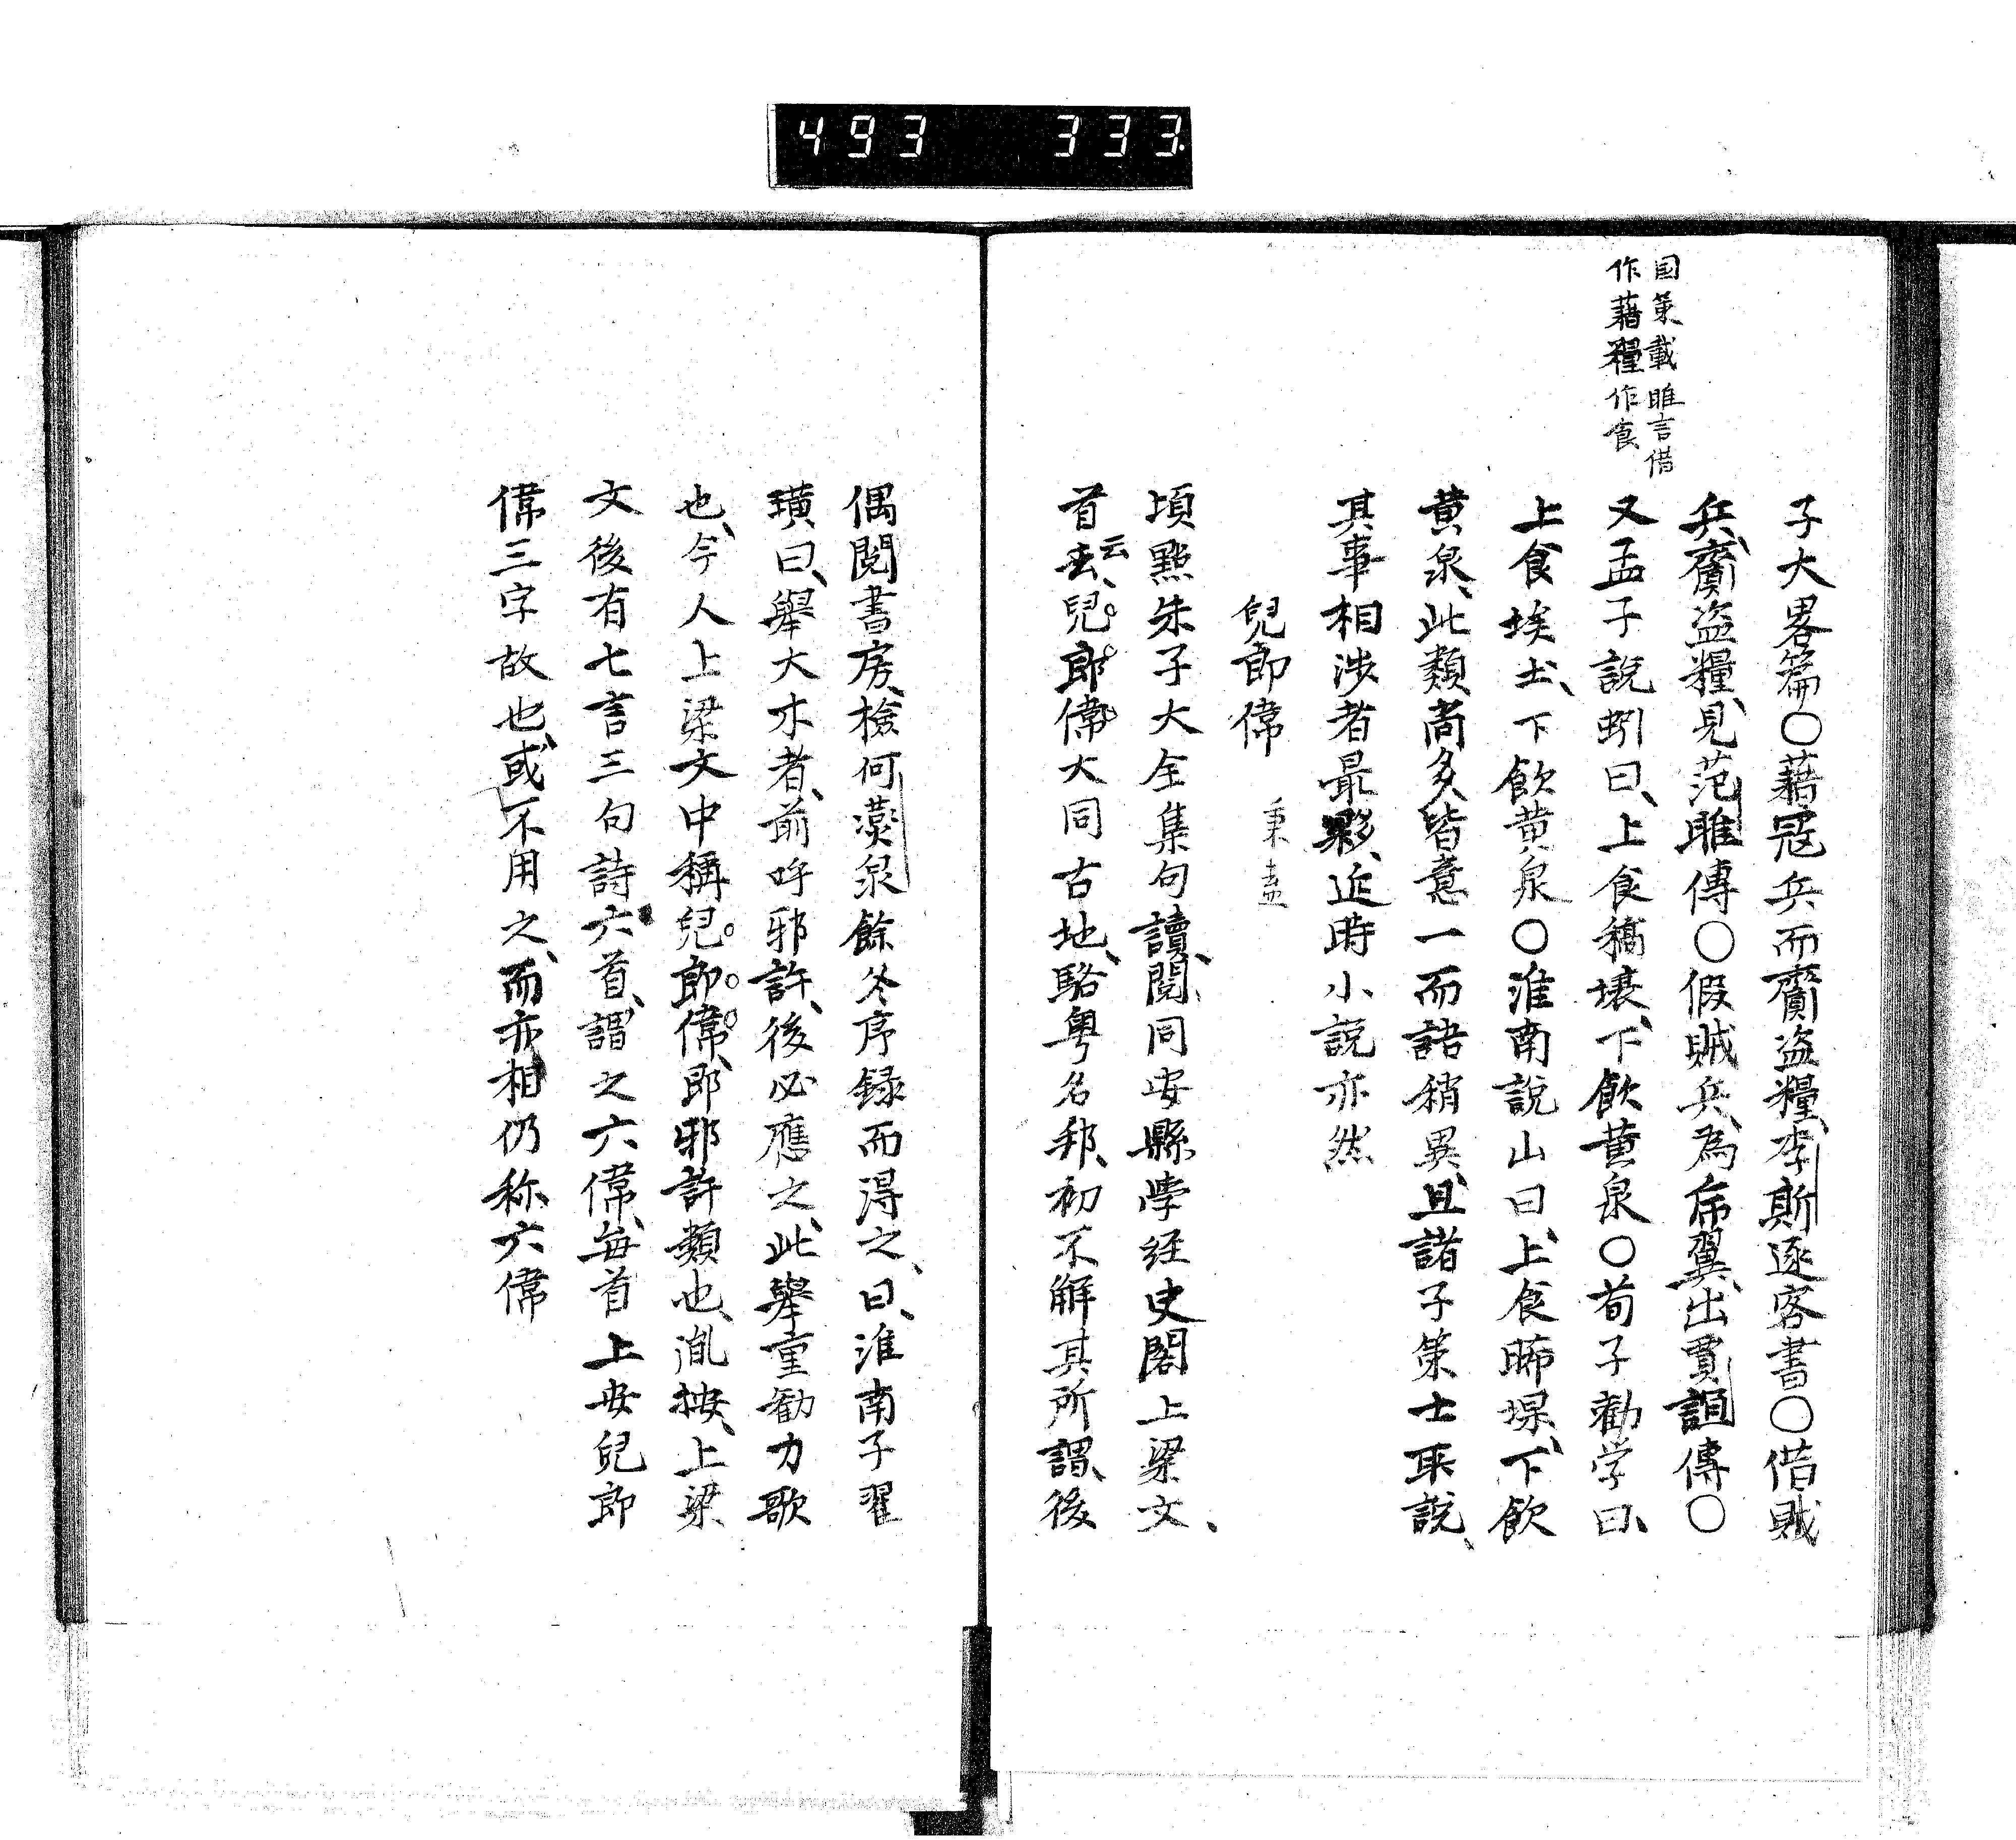 493 333
国策載雎言借
作藉糧作食
子大畧篇〇藉冦兵而齎盗糧、李斯逐客書〇借賊
兵、齎盗糧、見范雎傳〇假賊兵、為虎翼、出賈誼傳〇
又孟子說蚓曰、上食槁壌、下飲黄泉〇荀子勸学曰、
上食埃土、下飲黄泉〇淮南說山曰、上食晞堁、下飲
黄泉、此類尚多、皆意一而語稍異、且諸子策士耴說、
其事相涉者最夥、近時小說亦然
兒郎偉
頃點朱子大全集句讀、閲同安縣学経史閣上梁文、
首云、兒郎偉大同古地、駱粤名邦、初不解其所謂、後
偶閲書房、檢何燕泉餘冬序録而得之、曰、淮南子翟
璜曰、舉大木者、前呼邪許、後必應之、此舉重勧力歌
也、今人上梁文中稱兒郎偉、即邪許類也、胤按、上梁
文後有七言三句詩六首、謂之六偉、每首上安兒郎
偉三字故也、或不用之、而亦相仍称六偉